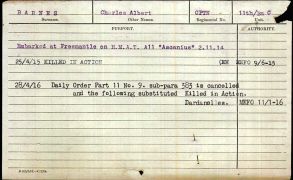 BARNES Charles Albert CPTN 11th/Bn C
Surname. Other Names. Regimental No. Unit.
PURPORT. AUTHORITY.
Embarked at Freemantle on H.M.A.T. A11 "Ascanius" 2.11.14
25/4/15 KILLED IN ACTION MEFO 9/6-15
28/4/16 Daily Order Part 11 No. 9. sub-para 383 is cancelled
and the following substituted Killed in Action.
Dardanelles. MEFO 11/1-16